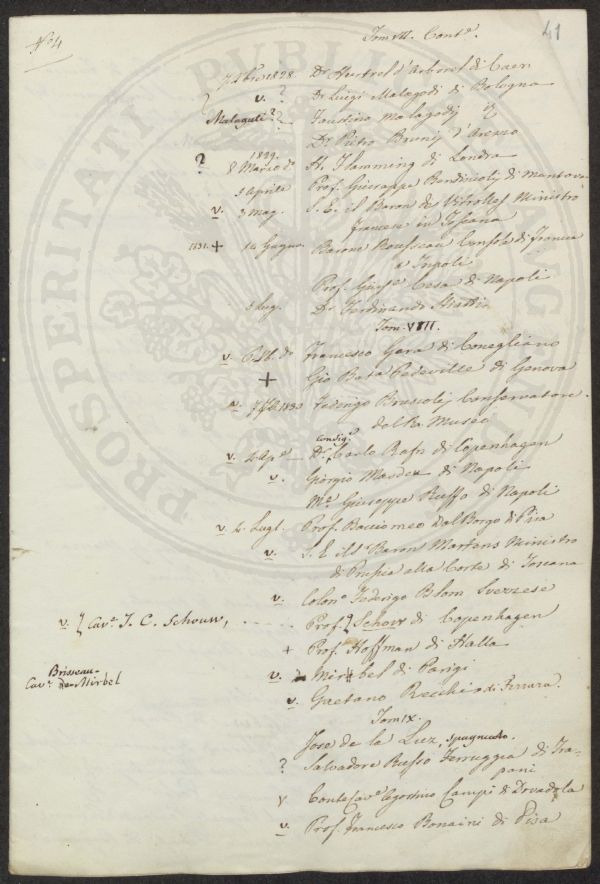 N.o 4
Tom. VII. Cont.e
41
7 Xbre 1828 Dr Hurtrel d'Arboval di Caen
? v. ? Dr Luigi Malagodi di Bologna
Malaguti? ? Faustino Malagodi ?
Dr Pietro Brunij d'Arezzo
1829.
? 8 Marzo do H. Flamming di Londra
3 Aprile Prof. Giuseppe Bendiscioli di Mantova
v. 3 mag. S. E. il Baron de Vitrolles Ministro
francese in Toscana
1831. + 14 Giugno Barone Rousseau Console di Francia
a Tripoli
Prof. Gius.e Cesa di Napoli
3 Lug. Dr Ferdinando
Tom. VIII.
v. 6 do Francesco Gera di Conegliano
+ Gio Bata Pedeville di Genova
v. 7 1830 Federigo Bruscoli Conservatore
del R. Museo
Consig.
v. 4 Ap.e Dr Carlo Rafn di Copenhagen
v. Giorgio di Napoli
M.e Giuseppe Ruffo di Napoli
v. 4. Lugl. Prof. Bacciomeo Dal Borgo di Pisa
v. S. E. il Sr Baron Martens Ministro
di Prussia alla Corte di Toscana
v. Colon.o Federigo Blom Svezzese
v. { Cav.e J. C. Schouw, ..... Prof. } Schouw di Copenhagen
+ Prof. Hoffman di Halla
Brisseau-
Cav.e de Mirbel v. Mirbel di Parigi
v. Gaetano Recchi di Ferrara.
Tom. IX.
Jose de la Luz, spagnuolo.
? Salvadore Russo Ferruggia di Tra-
pani
v Conte Cav.e Agostino Campi di Dovadola
v. Prof. Francesco Bonaini di Pisa
PROSPERITATI PUBLICAE AUGENDAE